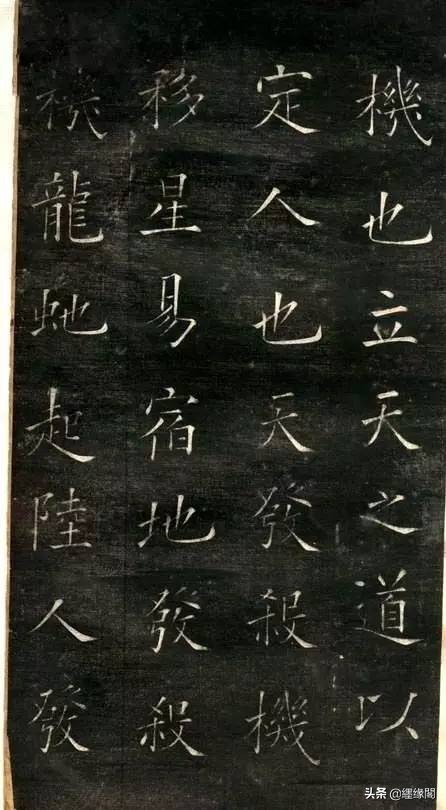 機也立天之道以
定人也天發殺機
移星易宿地發殺
機龍虵起陸人發
头条@纆缘閣